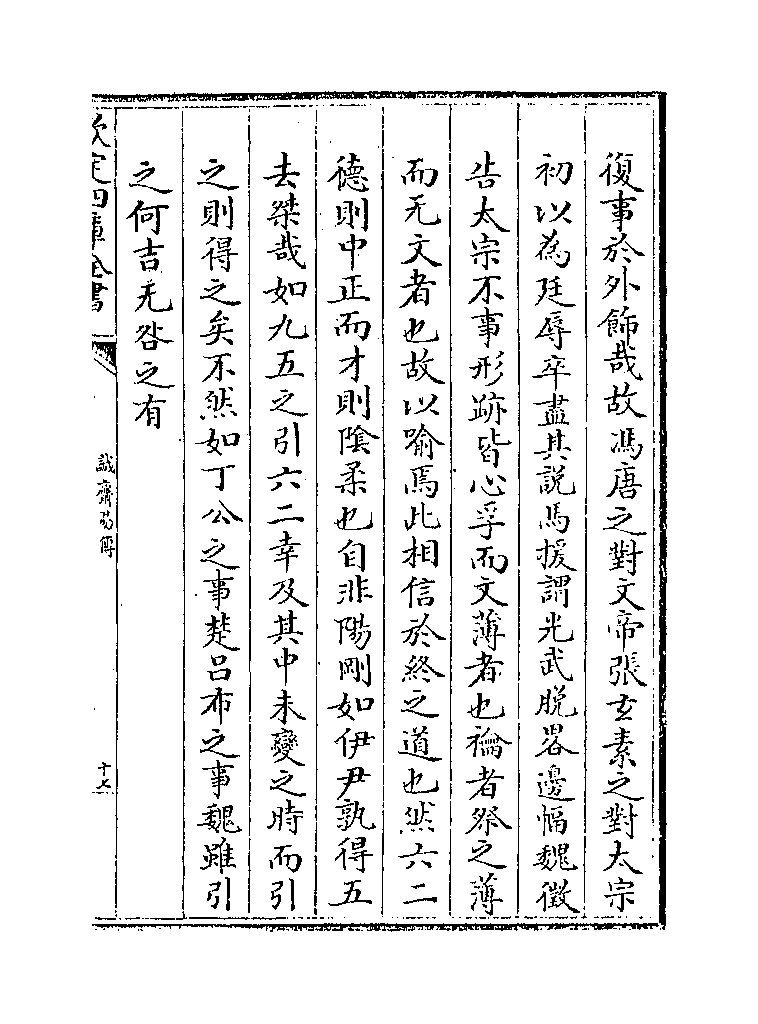 復事於外飾哉故馮唐之對文帝張𤣥素之對太宗
初以為廷辱卒盡其説馬援謂光武脱畧邊幅魏徵
告太宗不事形跡皆心孚而文薄者也禴者祭之薄
而无文者也故以喻焉此相信於終之道也然六二
德則中正而才則隂柔也自非陽剛如伊尹孰得五
去桀哉如九五之引六二幸及其中未變之時而引
之則得之矣不然如丁公之事楚吕布之事魏雖引
之何吉无咎之有
欽定四庫全書
誠齋易傳
十七